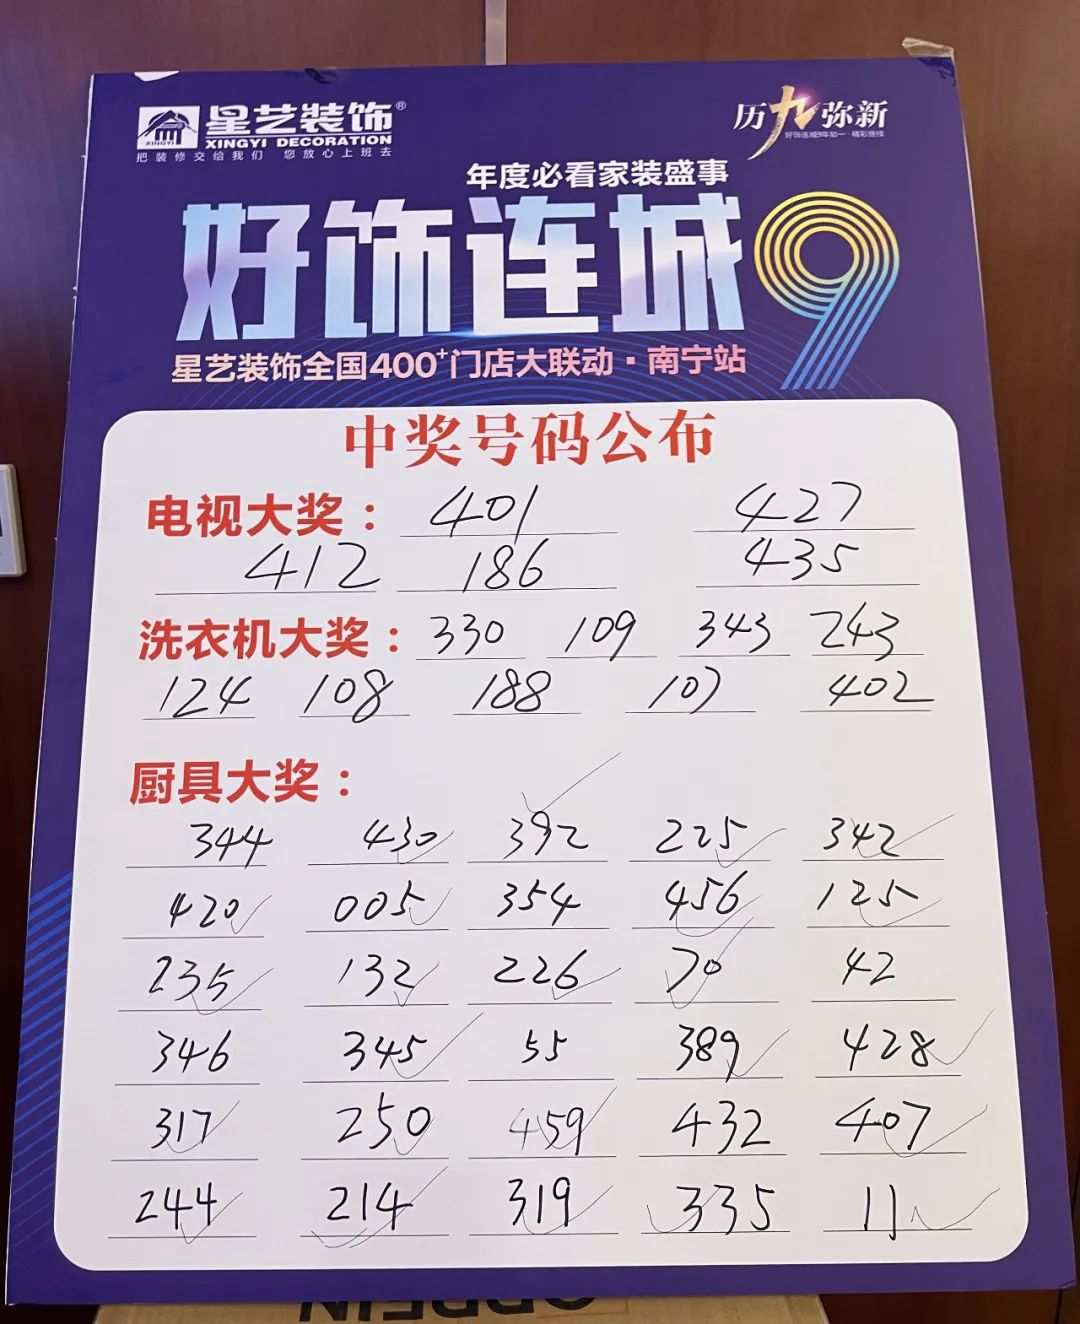 星艺装饰®
XINGYI DECORATION
XINGYI
把装修交给我们 您放心上班去
历九弥新
年度必看家装盛事
好饰连城9
星艺装饰全国400+门店大联动·南宁站
中奖号码公布
电视大奖： 401 427
412 186 435
洗衣机大奖： 330 109 343 243
124 108 188 107 402
厨具大奖：
344 430 392 225 342
420 005 354 456 125
235 132 226 70 42
346 345 55 389 428
317 250 459 432 407
244 214 319 335 11
OPPEIN